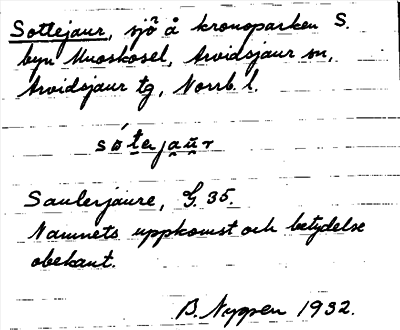 Sottejaur, sjö å kronoparken S.
byn Muoskosel, Arvidsjaur sn,
Arvidsjaur tg, Norrb. l.
sóte̠rja̮u̮r
Saulerjaure, G. 35.
Namnets uppkomst och betydelse
obekant.
B. Nyppen 1932.